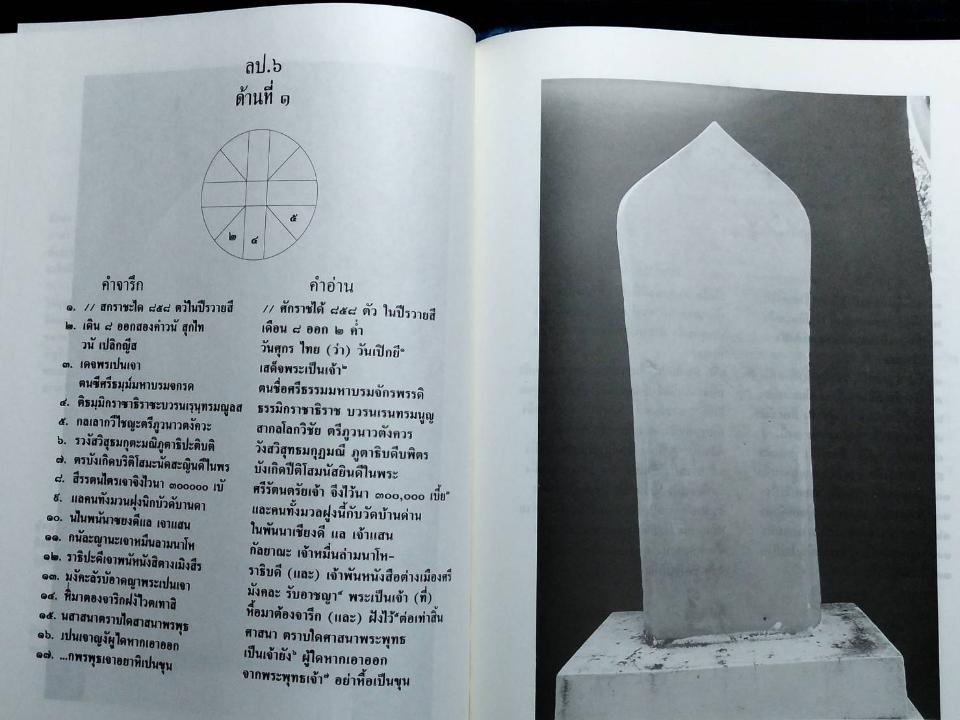 ลป.๖
ด้านที่ ๑
๒ ๔ ๕
คำจารึก
๑. // สกราชะได ๘๕๘ ตวัในปีรวายสี
๒. เดิน ๘ ออกสองคำวนั สุกไท
วนั เปลิกญีส
๓. เดจพรเปนเจา
ตนชืศรีธมฺม์มหาบรมจกรด
๔. ติธมฺมิกราชาธิราชะบวรนเรุนฺทรมญูลส
๕. กลเลากวีไชญะตรีภูวนาวตังควะ
๖. รวงัสวิสุธมกุตะมณิภูตาธิปะติบติ
๗. ตรบังเกิดบริติโสมะนัดสะญินดีในพร
๘. สีรรตนไตรเจาจิงไวนา ๓๐๐๐๐๐ เบั
๙. แลคนทังมวนฝุงนิกบัวดับานดา
๑๐. นในพนันาชยงดีแล เจาแสน
๑๑. กนัละญานะเจาหมืนลามนาโห
๑๒. ราธิปะดีเจาพนัหนังสิตางเมิงสีร
๑๓. มงัคะลัรับัอาดญาพระเปนเจา
๑๔. หื่มาตองจาริกฝงัไวดเทาสิ
๑๕. นสาสนาตราบไดสาสนาพรพุธ
๑๖. เปนเจาญงัผูไดหากเอาออก
๑๗. ...กพรพุธเจาอยาหืเปนขุน
คำอ่าน
// ศักราชได้ ๘๕๘ ตัว ในปีรวายสี
เดือน ๘ ออก ๒ ค่ำ
วันศุกร ไทย (ว่า) วันเปิกยี๑
เสด็จพระเป็นเจ้า๒
ตนชื่อศรีธรรมมหาบรมจักรพรรดิ
ธรรมิกราชาธิราช บวรนเรนทรมนูญ
สากลโลกวิชัย ตรีภูวนาวตังควร
วังสวิสุทธมกุฏมณี ภูตาธิบดีบพิตร
บังเกิดปีติโสมนัสยินดีในพระ
ศรีรัตนตรัยเจ้า จึงไว้นา ๓๐๐,๐๐๐ เบี้ย๓
และคนทั้งมวลฝูงนี้กับวัดบ้านด่าน
ในพันนาเชียงดี แล เจ้าแสน
กัลยาณะ เจ้าหมื่นล่ามนาโห-
ราธิบดี (และ) เจ้าพันหนังสือต่างเมืองศรี
มังคละ รับอาชญา๔ พระเป็นเจ้า (ที่)
หื้อมาต้องจาริก (และ) ฝังไว้๕ต่อเท่าสิ้น
ศาสนา ตราบใดศาสนาพระพุทธ
เป็นเจ้ายัง๖ ผู้ใดหากเอาออก
จากพระพุทธเจ้า๗ อย่าหื้อเป็นขุน